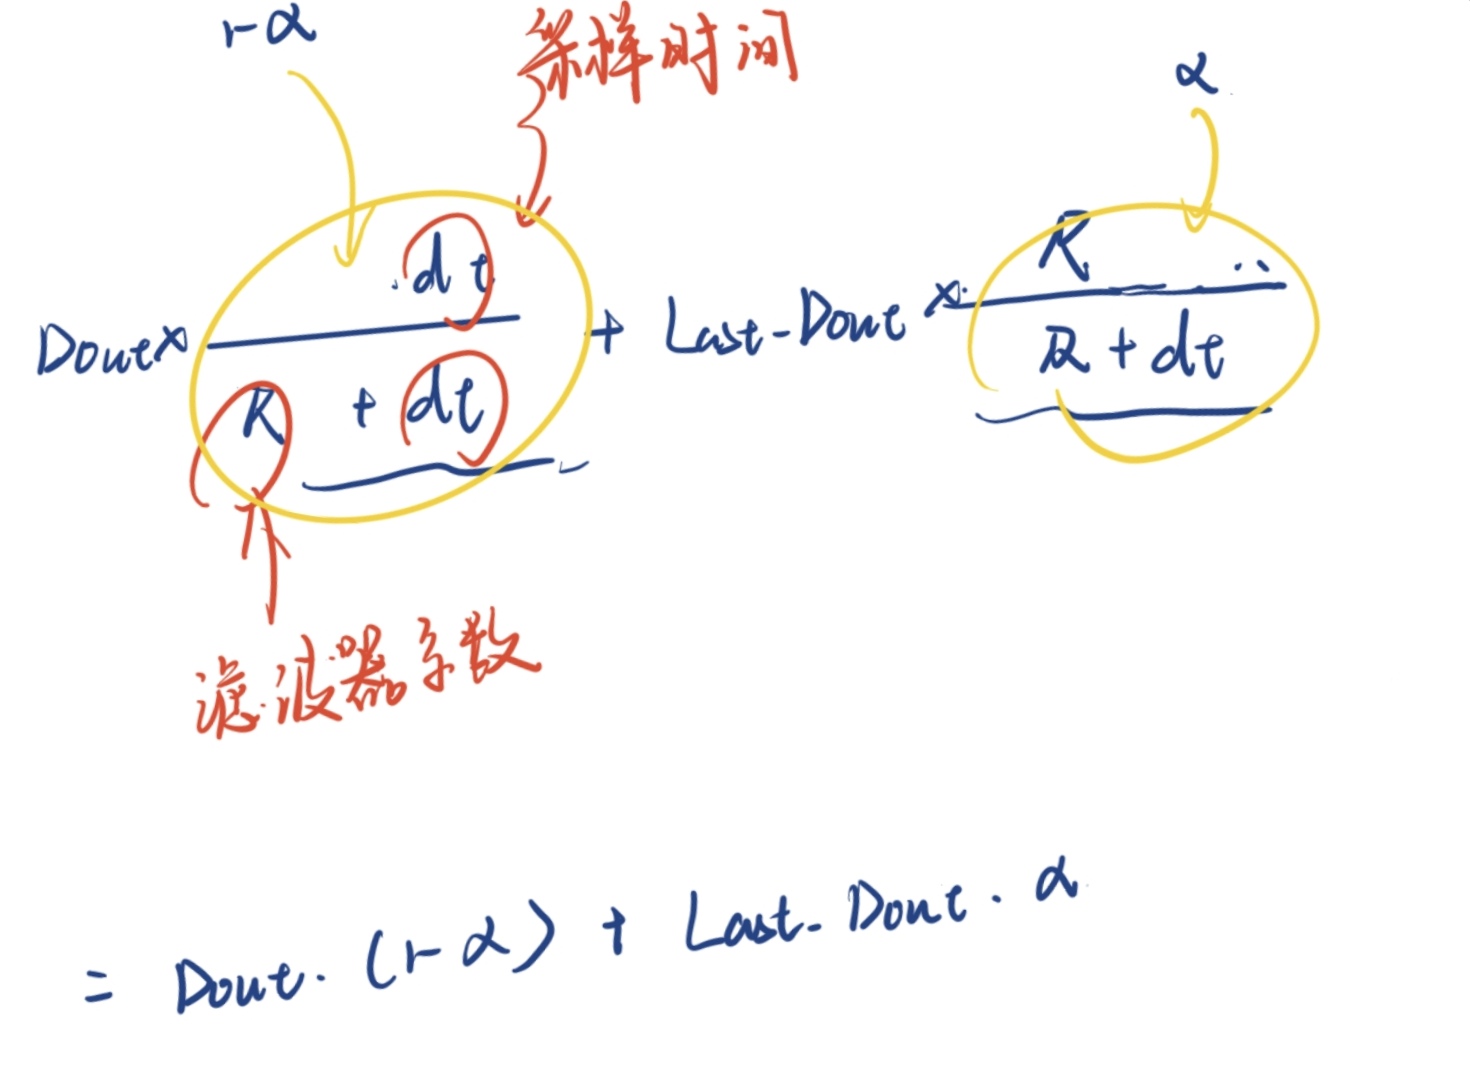 1-α
采样时间
α
Dout × dt / (R + dt) + Last-Dout × R / (R + dt)
滤波器系数
= Dout · (1-α) + Last-Dout · α